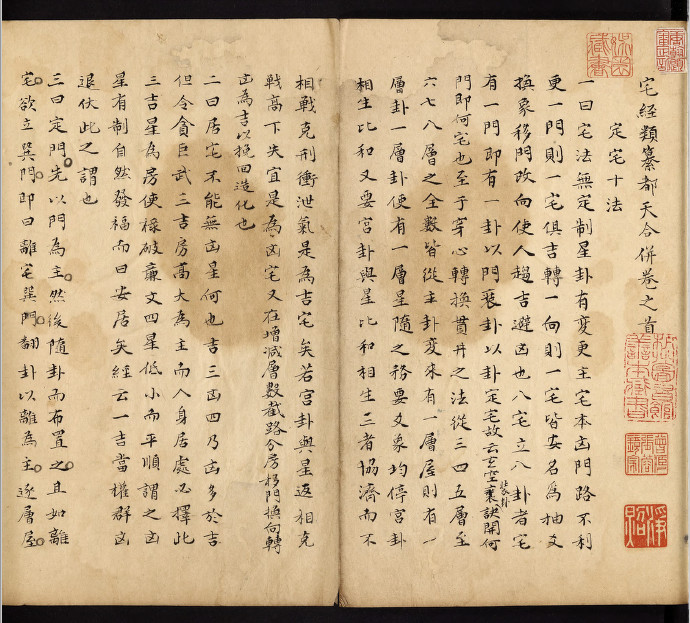 宅經類纂都天合併卷之首
定宅十法
一曰宅法無定制星卦有変更主宅本凶門路不利
更一門則一宅俱吉轉一向則一宅皆安名為抽爻
換象移門改向使人趨吉避凶也八宅立八卦者宅
有一門即有一卦以門裝卦以卦定宅故云玄空裝卦訣開何
門即何宅也至于穿心轉換貫井之法從三四五層至
六七八層之全數皆從主卦変來有一層屋則有一
層卦一層卦便有一層星隨之務要爻象均停宮卦
相生比和又要宮卦與星比和相生三者協濟而不
相戰克刑衝泄氣是為吉宅矣若宮卦與星返相克
戰高下失宜是為凶宅又在增減層數截路分房移門換向轉
凶為吉以挽回造化也
二曰居宅不能無凶星何也吉三凶四乃凶多於吉
但令貪巨武三吉房高大為主而人身居處必擇此
三吉星為房使祿破廉文四星低小而平順謂之凶
星有制自然發福而曰安居矣經云一吉當權群凶
退伏此之謂也
三曰定門先以門為主然後隨卦而布置之且如離
宅欲立巽門即曰離宅巽門翻卦以離為主逐層屋